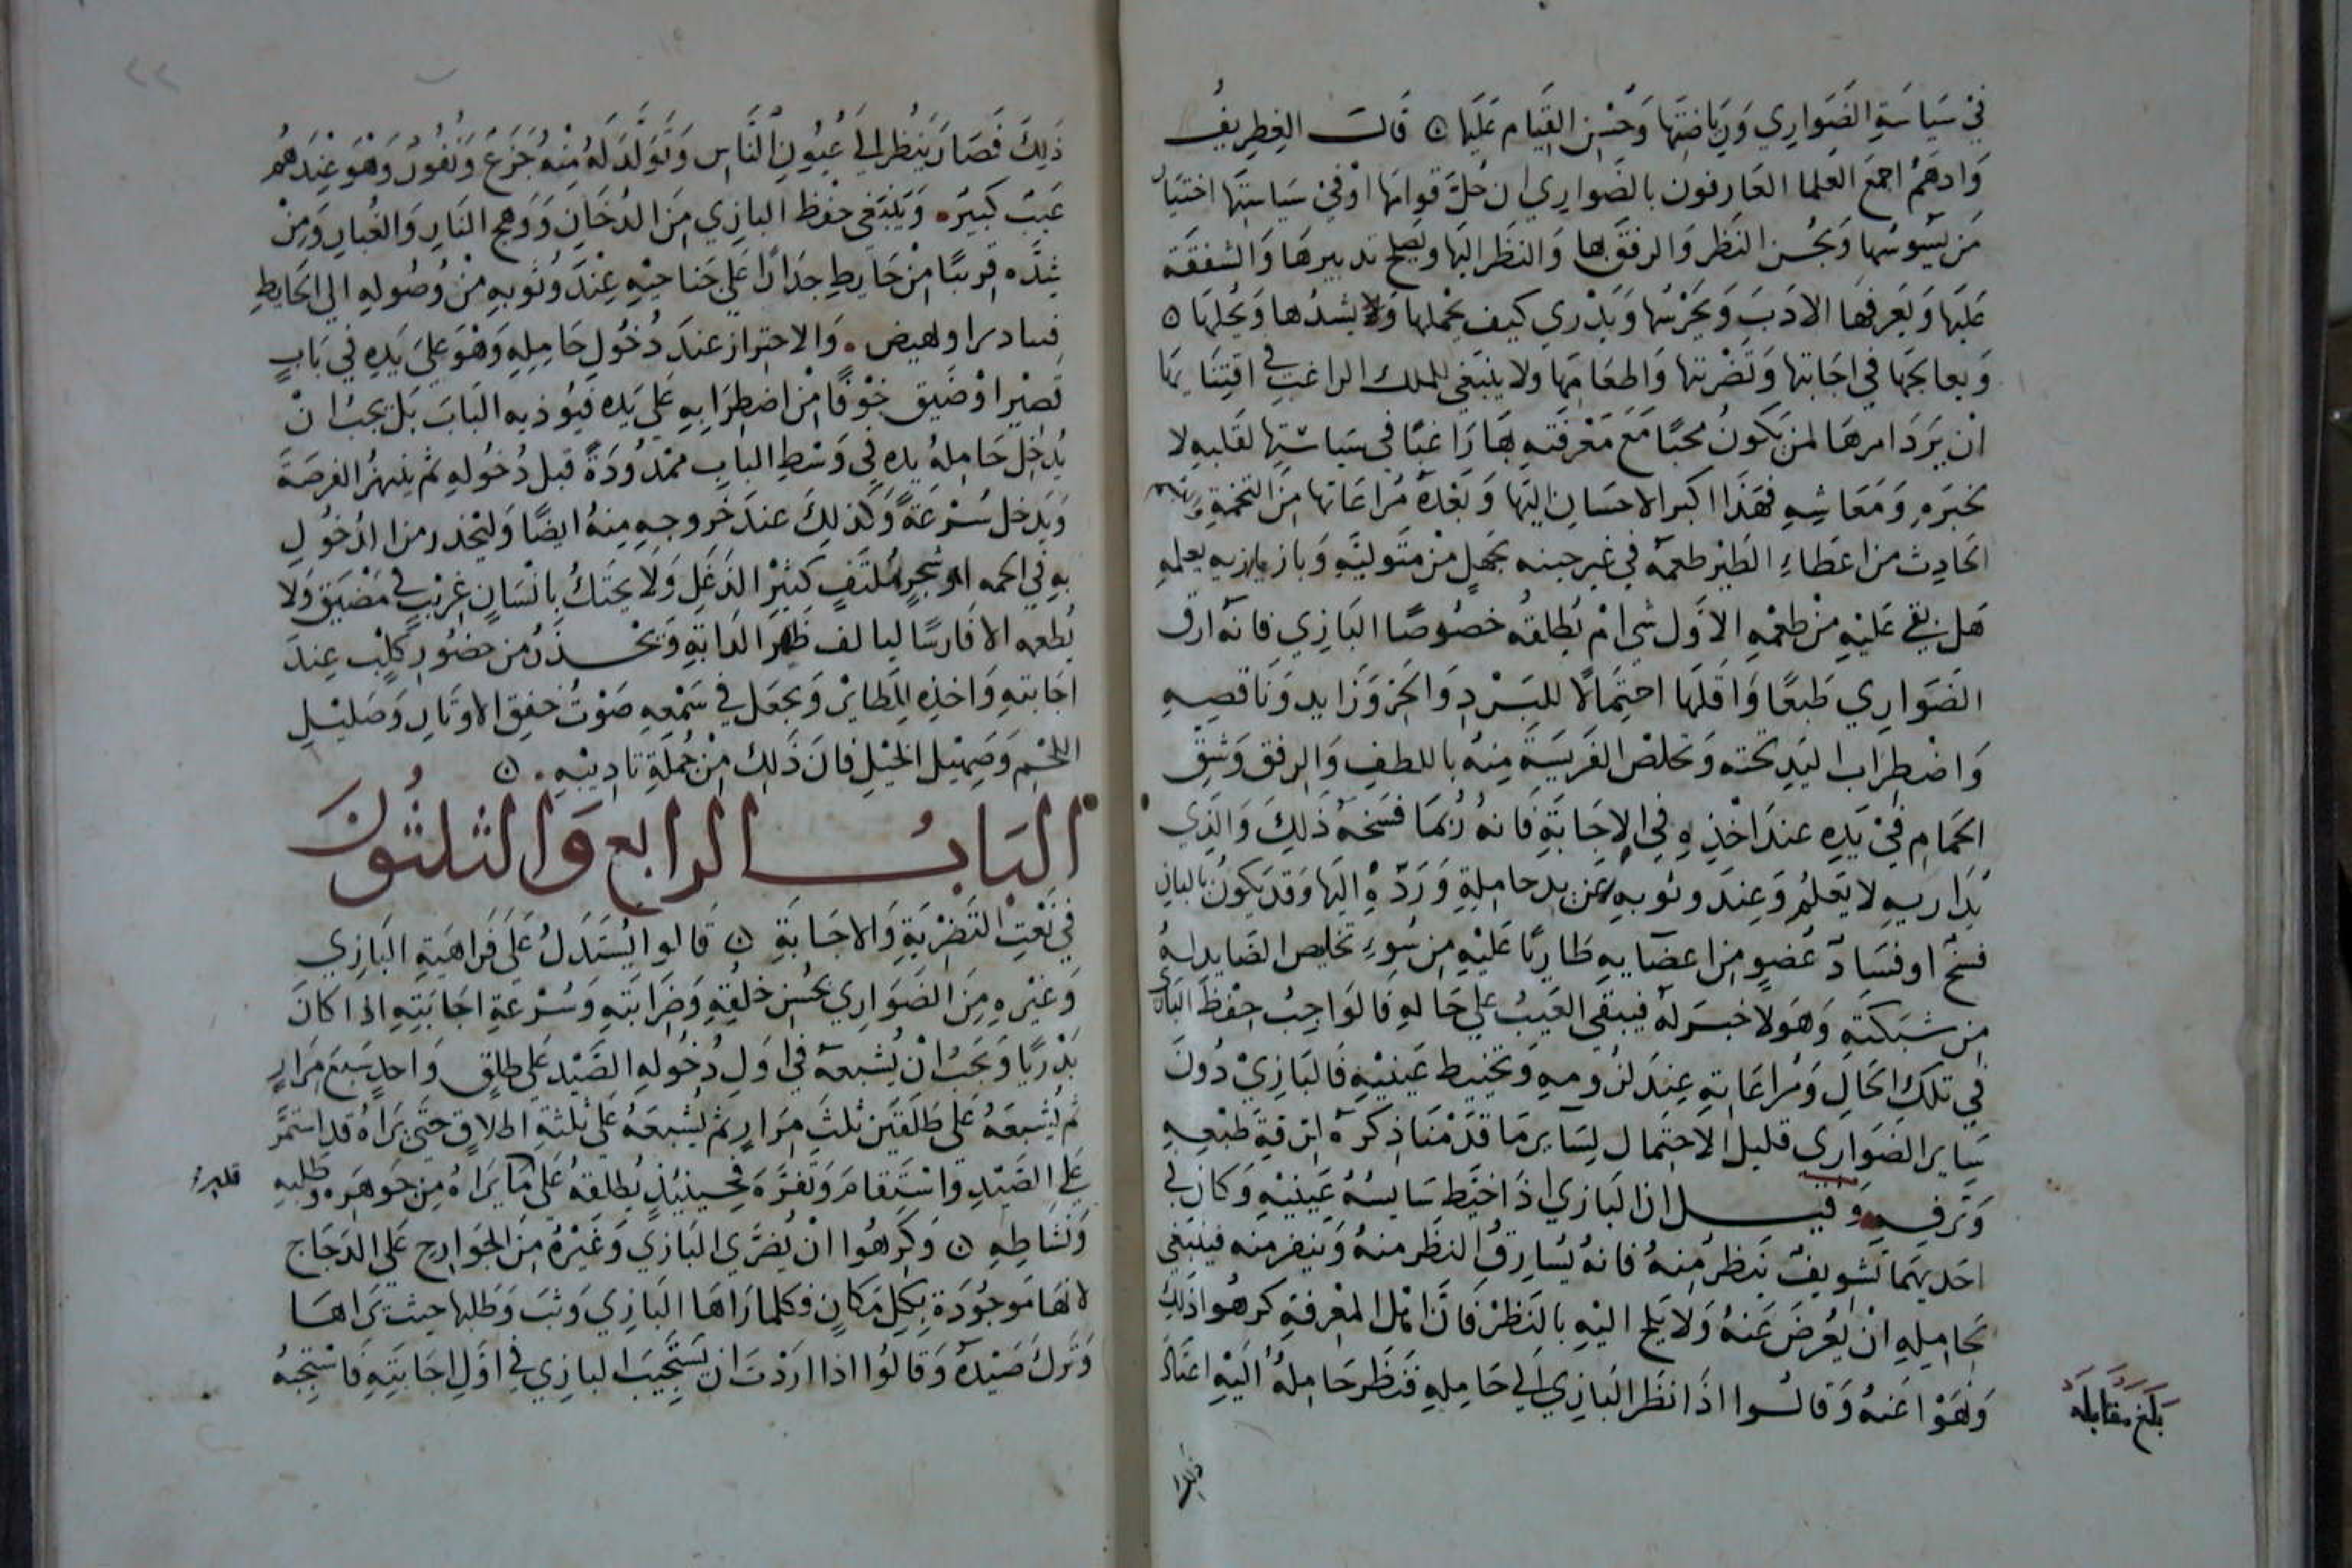 في سياسة الضواري ورياضتها وحسن القيام عليها ن قالت الغطريف
وادهم اجمع العلما العارفون بالضواري ان جل قوامها اوفي سياستها اختيار
من يسوسها ويحسن النظر والرفق بها والنظر اليها ويصلح تدبيرها والشفقة
عليها ويعرفها الادب ويجرسها ويدري كيف يحملها ولا يشدها ويحلها ن
وبعالجها في اجابتها وتضريتها واطعامها ولا ينبغي للملك الراغب في اقتنايها
ان يرد امرها لمن يكون محبا مع معرفته بها راغبا في سياستها لقلبه لا
لخبزه ومعاشه فهذا اكبر الاحسان اليها وبعده مراعاتها من التخمة
الحادث من اعطاء الطير طعمه في غير حينه بجهل من متوليه يعلمه
هل بقي عليه من طعمه الاول شي ام يطلقه خصوصا البازي فانه ارق
الضواري طبعا واقلها احتمالا للبرد والحر وزايد وناقصه
واضطراب اليد تحته وتخلص الفريسة منه باللطف والرفق وشق
الحمام في يده عند اخذه في الاجابة فانه ربما فسخه ذلك والذي
يداريه لا يعلم وعند وثوبه عن يد حامله ورده اليها وقد يكون بالبازي
فسخ او فساد عضو من اعضايه طاريا عليه من سوء تخليص الصايد له
من شبكته وهو لا خبر له فيبقى العيب على حاله فالواجب حفظ البازي
في تلك الحال ومراعاته عند لزومه وتخييط عينيه فالبازي دون
ساير الضواري قليل الاحتمال لساير ما قدمنا ذكره لرقة طبعه
وترفه وقيل ان البازي اذا خيط سايسه عينيه وكان في
احديهما تشويف ينظر منه فانه يسارق النظر منه وينفر منه فينبغي
لحامله ان يعرض عنه ولا يلح اليه بالنظر فان اهل المعرفة كرهوا ذلك
ونهوا عنه وقالوا اذا نظر البازي الى حامله فنظر حامله اليه اعتاد
بلغ مقابله
ذلك فصار ينظر الى عيون الناس وتولد له منه جزع ونفور وهو عندهم
عيب كبير وينبغي حفظ البازي من الدخان ووهج النار والغبار ومن
شده قريبا من حايط حذارا على جناحيه عند وثوبه من وصوله الى الحايط
والاحتراز عند دخول حامله وهو على يده في باب
قصير او ضيق خوفا من اضطرابه على يده فيوذيه الباب بل يجب ان
يدخل حامله يده في وسط الباب ممدودة قبل دخوله ثم ينهز الفرصة
ويدخل سرعة وكذلك عند خروجه منه ايضا وليحذر من الدخول
به في اجمه او شجر ملتف كثير الدغل ولا يحتك بانسان غريب في مضيق ولا
يطعمه الا فارسا ليالف ظهر الدابة ويحذر من حضور كلب عند
اجابته واخذه للطاير ويجعل في سمعه صوت خفق الاوتار وصليل
اللجم وصهيل الخيل فان ذلك من جملة تاديبه ن
الباب الرابع والثلثون
في نعت التضرية والاجابة ن قالوا يستدل على فراهية البازي
وغيره من الضواري بحسن خلقه وضرابته وسرعة اجابته اذا كان
بدريا ويجب ان يشبعه في اول دخوله الصيد على طلق واحد سبع مرار
ثم يشبعه على طلقين ثلث مرار ثم يشبعه على ثلثة اطلاق حتى يراه قد استمر
على الصيد واستقام وتفره فحينيذ يطلقه على ما يراه من جوهره وطلبه
ونشاطه ن وكرهوا ان يضري البازي وغيره من الجوارح على الدجاج
لانها موجودة بكل مكان فكلما راها البازي وثب وطلبها حيث يراها
وترك صيده وقالوا اذا اردت ان يستجيب البازي في اول اجابته فاستجبه